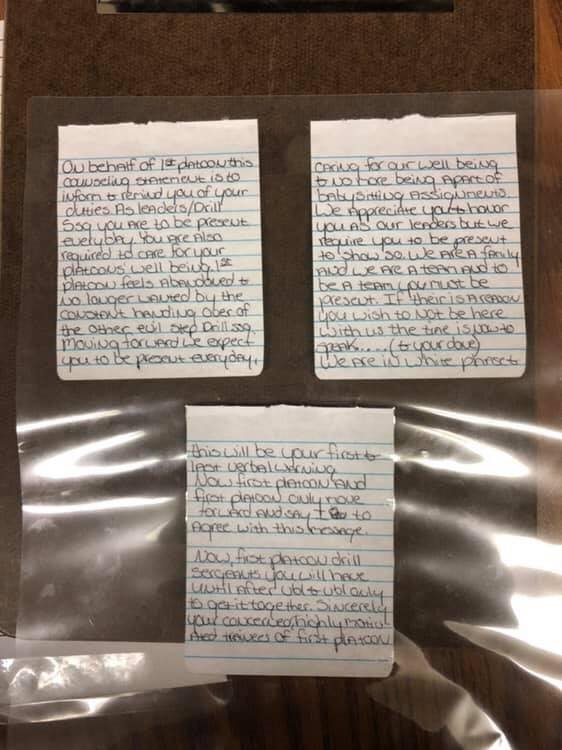 On behalf of 1st platoon this
counseling statement is to
inform & remind you of your
duties. As leaders/Drill
SSG you are to be present
everyday. You are also
required to care for your
platoons' well being. 1st
platoon feels abandoned &
no longer wanted by the
constant handing over of
the other evil step Drill SSG.
Moving forward we expect
you to be present everyday,
caring for our well being
& no more being apart of
babysitting assignments.
We appreciate you & honor
you as our leaders but we
require you to be present
to show so. We are a family
and we are a team and to
be a team you must be
present. If their is a reason
you wish to not be here
with us the time is now to
speak..... (& your done)
We are in white phase &
this will be your first &
last verbal warning.
Now first platoon and
first platoon only move
forward and say I to
agree with this message.
Now, first platoon drill
sergeants you will have
until after ubl & ubl only
to get it together. Sincerely
your concerned, highly motiv
ated trainees of first platoon